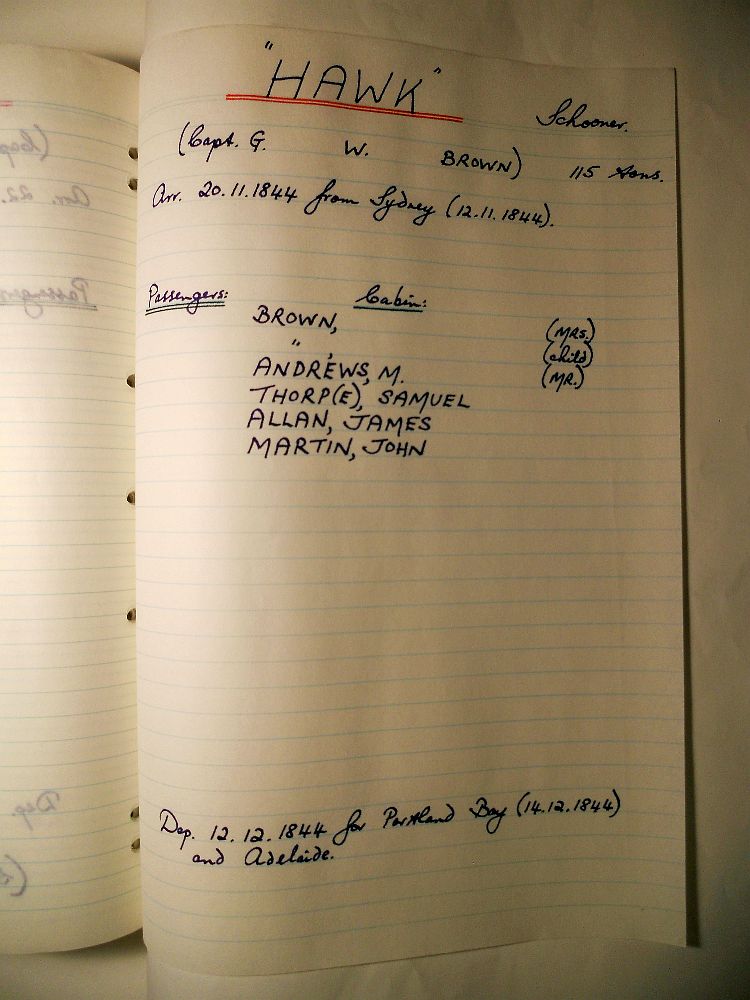 "HAWK"
Schooner.
(Capt. G. W. BROWN) 115 tons.
Arr. 20.11.1844 from Sydney (12.11.1844).
Passengers: Cabin:
BROWN, (MRS.)
" , (child)
ANDREWS, M. (MR.)
THORP(E), SAMUEL
ALLAN, JAMES
MARTIN, JOHN
Dep. 12.12.1844 for Portland Bay (14.12.1844)
and Adelaide.